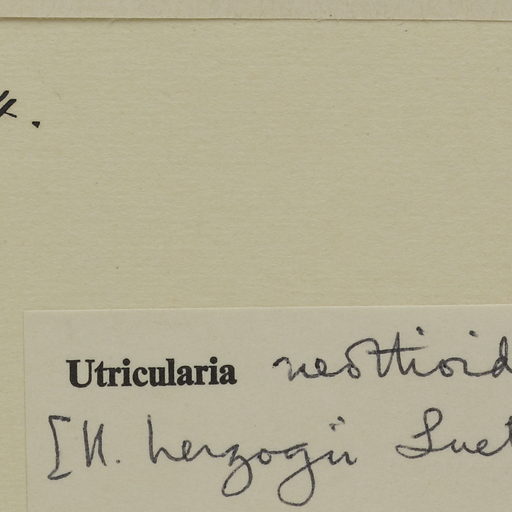 Utricularia neottioid
[U. herzogii Luet